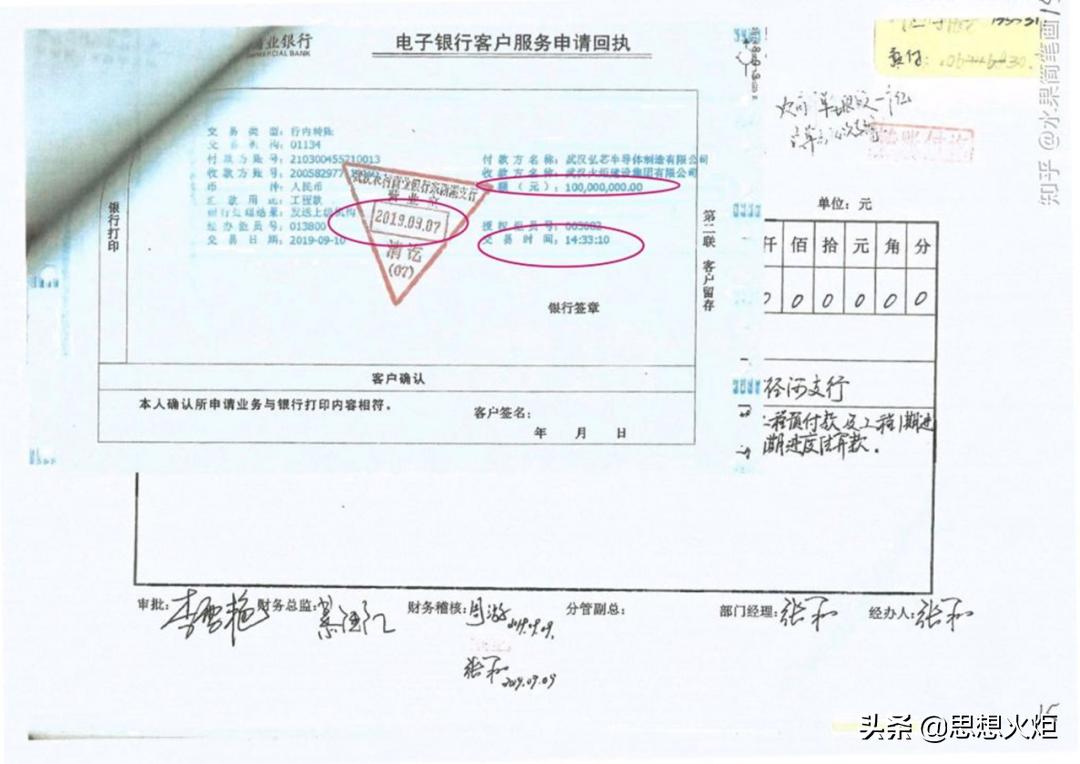 商业银行
COMMERCIAL BANK
电子银行客户服务申请回执
交易类型：行内转账
交易机构：01134
付款方账号：210300455710013
付款方名称：武汉弘芯半导体制造有限公司
收款方账号：200582977
收款方名称：武汉火炬建设集团有限公司
币种：人民币
金额（元）：100,000,000.00
汇款用途：工程款
发送上级机构
经办柜员号：013800
授权柜员号：003082
交易日期：2019-09-10
交易时间：14:33:10
营业室
2019.09.07
清讫
(07)
银行打印
第二联 客户留存
银行签章
客户确认
本人确认所申请业务与银行打印内容相符。
客户签名：
年 月 日
单位：元
仟 佰 拾 元 角 分
0 0 0 0 0 0
径河支行
工程预付款及工程1期进
期进度结算款.
审批： 财务总监： 财务稽核：周游 分管副总： 部门经理：张和 经办人：张和
2019.09.09.
张和 2019.09.09
15
知乎 @水果简笔画
头条 @思想火炬